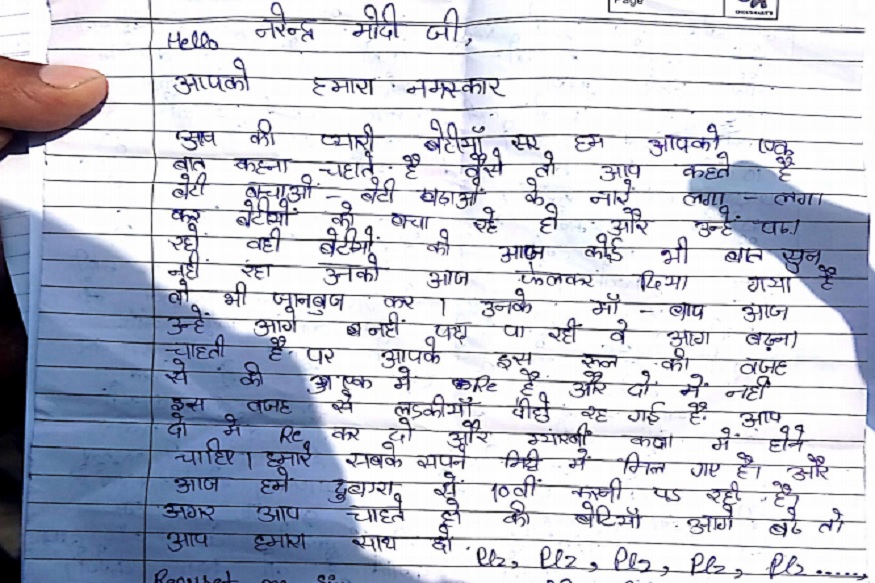 Page
Hello नरेन्द्र मोदी जी,
आपको हमारा नमस्कार
आप की प्यारी बेटीयाँ सर हम आपको एक
बात कहना चहाते है वैसे तो आप कहते है
बेटी बचाओ - बेटी पढाओं के नारें लगा - लगा
कर बेटीयों को बचा रहे हो और उन्हे पढा
रहे वही बेटीयों को आज कोई भी बात सुन
नही रहा उनको आज फेलकर दिया गया है
वो भी जानबुज कर। उनके माँ - बाप आज
उन्हे आगे नहीं पढा पा रहीं वे आग बढ़ना
चाहती है पर आपके इस रूल की वजह
से की एक में Re है और दो में नहीं
इस वजह से लडकीयाँ पीछे रह गई है आप
दो में Re कर दो और ग्यारवी कक्षा में होने
चाहिए। हमारे सबके सपने मिट्टी में मिल गए है। और
आज हमें दुबारा से 10वीं करनी पड रही है,
अगर आप चाहते हो की बेटियाँ आगे बढे तो
आप हमारा साथ दो
Plz, Plz, Plz, Plz, Plz.....,
Request